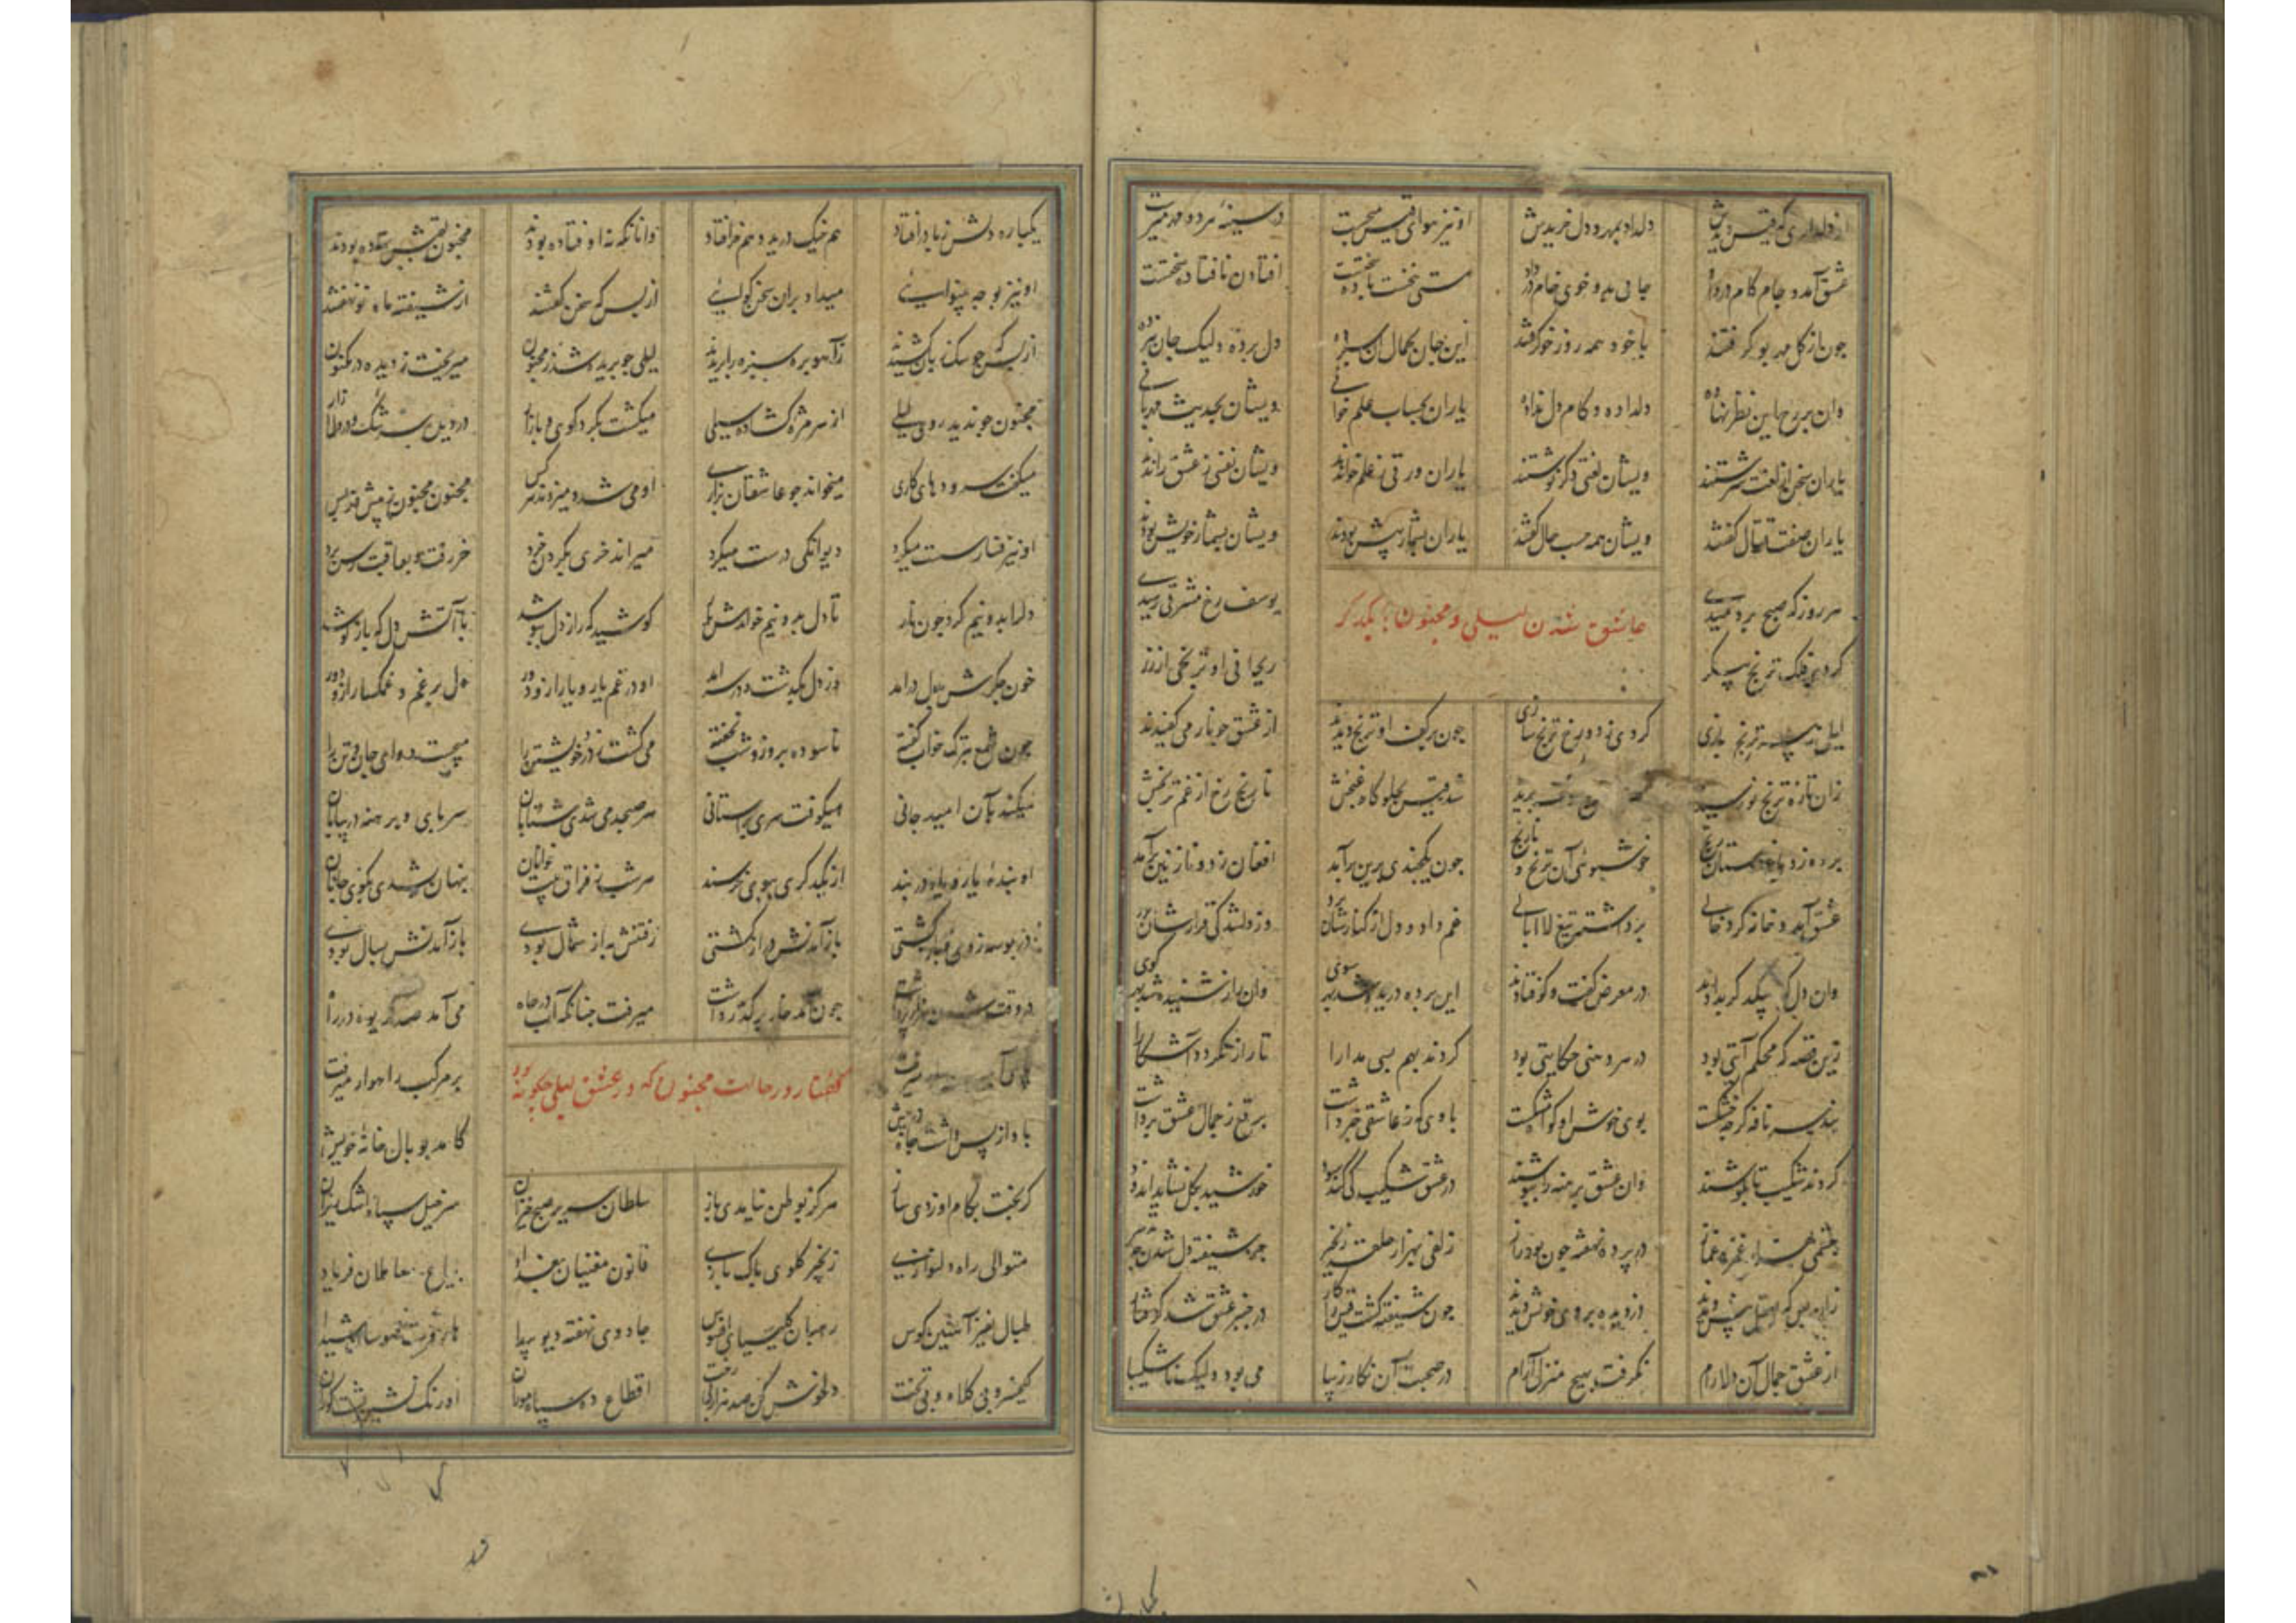 از دلداری که قیس دیدش دلداد بمهر و دل خریدش او نیز هوای قیس میجست در سینه هر دو مهر میرست
عشق آمد و جام کام در داد جامی بدو خوی خام در داد مستی بنخست باده سختست افتادن نافتاده سختست
چون از گل مهر بو گرفتند با خود همه روز خو گرفتند این جان بجمال آن سپرده دل برده ولیک جان نبرده
وان بر رخ این نظر نهاده دلداده و کام دل نداده یاران بحساب علم خوانی ویشان بحدیث مهربانی
یاران سخن از لغت سرشتند ویشان لغتی دگر نوشتند یاران ورقی ز علم خواندند ویشان نفسی ز عشق راندند
یاران صفت فعال گفتند ویشان همه حسب حال گفتند یاران بشمار پیش بودند ویشان بشمار خویش بودند
عاشق شدن لیلی و مجنون بیکدیگر
هر روز که صبح بردمیدی یوسف رخ مشرقی رسیدی
کردی فلک ترنج پیکر ریحانی او ترنجی از زر
لیلی ز سر ترنج بازی کردی ز دو رخ ترنج سازی چون بر کف او ترنج دیدند از عشق چو نار می کفیدند
زان تازه ترنج نو رسیده شد قیس بجلوه گاه غنجش نارنج رخ از غم ترنجش
برده ز دوستان رنج خوشبوئی آن ترنج و نارنج چون یکچندی برین برآمد افغان ز دو نازنین برآمد
عشق آمد و خانه کرد خالی برداشته تیغ لاابالی غم داد و دل از کنارشان برد وز دلشدگی قرارشان برد
وان دل که بیکدگر بدادند در معرض گفت و گو فتادند این پرده دریده شد بهر سوی وان راز شنیده شد بهر کوی
زین قصه که محکم آیتی بود در هر دهنی حکایتی بود کردند بهم بسی مدارا تا راز نگردد آشکارا
بند سر نافه گرچه خشکست بوی خوش او گواه مشکست بادی که ز عاشقی خبر داشت برقع ز جمال عشق برداشت
کردند شکیب تا بکوشند وان عشق برهنه را بپوشند در عشق شکیب کی کند سود خورشید بگل نشاید اندود
چشمی بهزار غمزه غماز در پرده نهفته چون بود راز زلفی بهزار حلقه زنجیر جز شیفته دل شدن چه تدبیر
زان پس که بعقل پیش دیدند دزدیده بروی خویش دیدند چون شیفته گشت قیس را کار در چنبر عشق شد گرفتار
از عشق جمال آن دلارام نگرفت بهیچ منزل آرام در صحبت آن نگار زیبا می بود ولیک ناشکیبا
یکباره دلش ز پا درافتاد هم خیک درید و هم خر افتاد وانانکه نه اوفتاده بودند مجنون لقبش نهاده بودند
او نیز بوجه بینوایی میداد بران سخن گوایی از بس که سخن گفتند از شیفته ماه نو نهفتند
از بس که چو سگ زبان کشیدند ز آهو بره سبزه را بریدند لیلی چو بریده شد ز مجنون میریخت ز دیده در مکنون
مجنون چو ندید روی لیلی از هر مژه گشاده سیلی میگشت بگرد کوی و بازار در دیده سرشک و در دل آزار
میگفت سرودهای کاری میخواند چو عاشقان بزاری او می شد و میزدند هر کس مجنون مجنون ز پیش و از پس
او نیز فسار سست میکرد دیوانگی درست میکرد میراند خری بگردن خرد خر رفت و بعاقبت رسن برد
دلرا بدو نیم کرد چون نار تا دل بدو نیم خواندش یار کوشید که راز دل بپوشد با آتش دل که باز کوشد
خون جگرش بدل درآمد وز دل بگذشت و بر سر آمد او در غم یار و یار ازو دور دل پر غم و غمگسار ازو دور
چون شمع بترک خواب گفته ناسوده بروز و شب نخفته می کشت ز درد خویشتن را میجست دوای جان و تن را
میکند بآن امید جانی میکوفت سری بر آستانی هر صبحدمی شدی شتابان سرپای برهنه در بیابان
او بنده یار و یار در بند از یکدگری ببوی خرسند هر شب ز فراق بیت خوانان پنهان شدی بکوی جانان
در بوسه زدی و بازگشتی باز آمدنش دراز گشتی رفتنش به از شمال بودی باز آمدنش بسال بودی
در وقت شدن هزار پر داشت چون آمد خار بر گذر داشت میرفت چنانکه آب در چاه می آمد صد گریوه در راه
میرفت بر مرکب راهوار میرفت
گفتار در حالت مجنون که در عشق لیلی چگونه بود
باد از پس داشت چاه در پیش کامد بوبال خانه خویش
گر بخت بکام او زدی ساز هرگز بوطن نیامدی باز سلطان سریر صبح خیزان سرخیل سپاه اشک ریزان
متواری راه دلنوازی زنجیری کوی پاک بازی قانون مغنیان بغداد بیاع معاملان فریاد
طبال نفیر آهنین کوس رهبان کلیسیای افسوس جادوی نهفته دیو پیدا هاروت مشوشان شیدا
کیخسرو بی کلاه و بی تخت دلخوش کن صد هزار بی رخت اقطاع ده سپاه موران اورنگ نشین پشت گوران